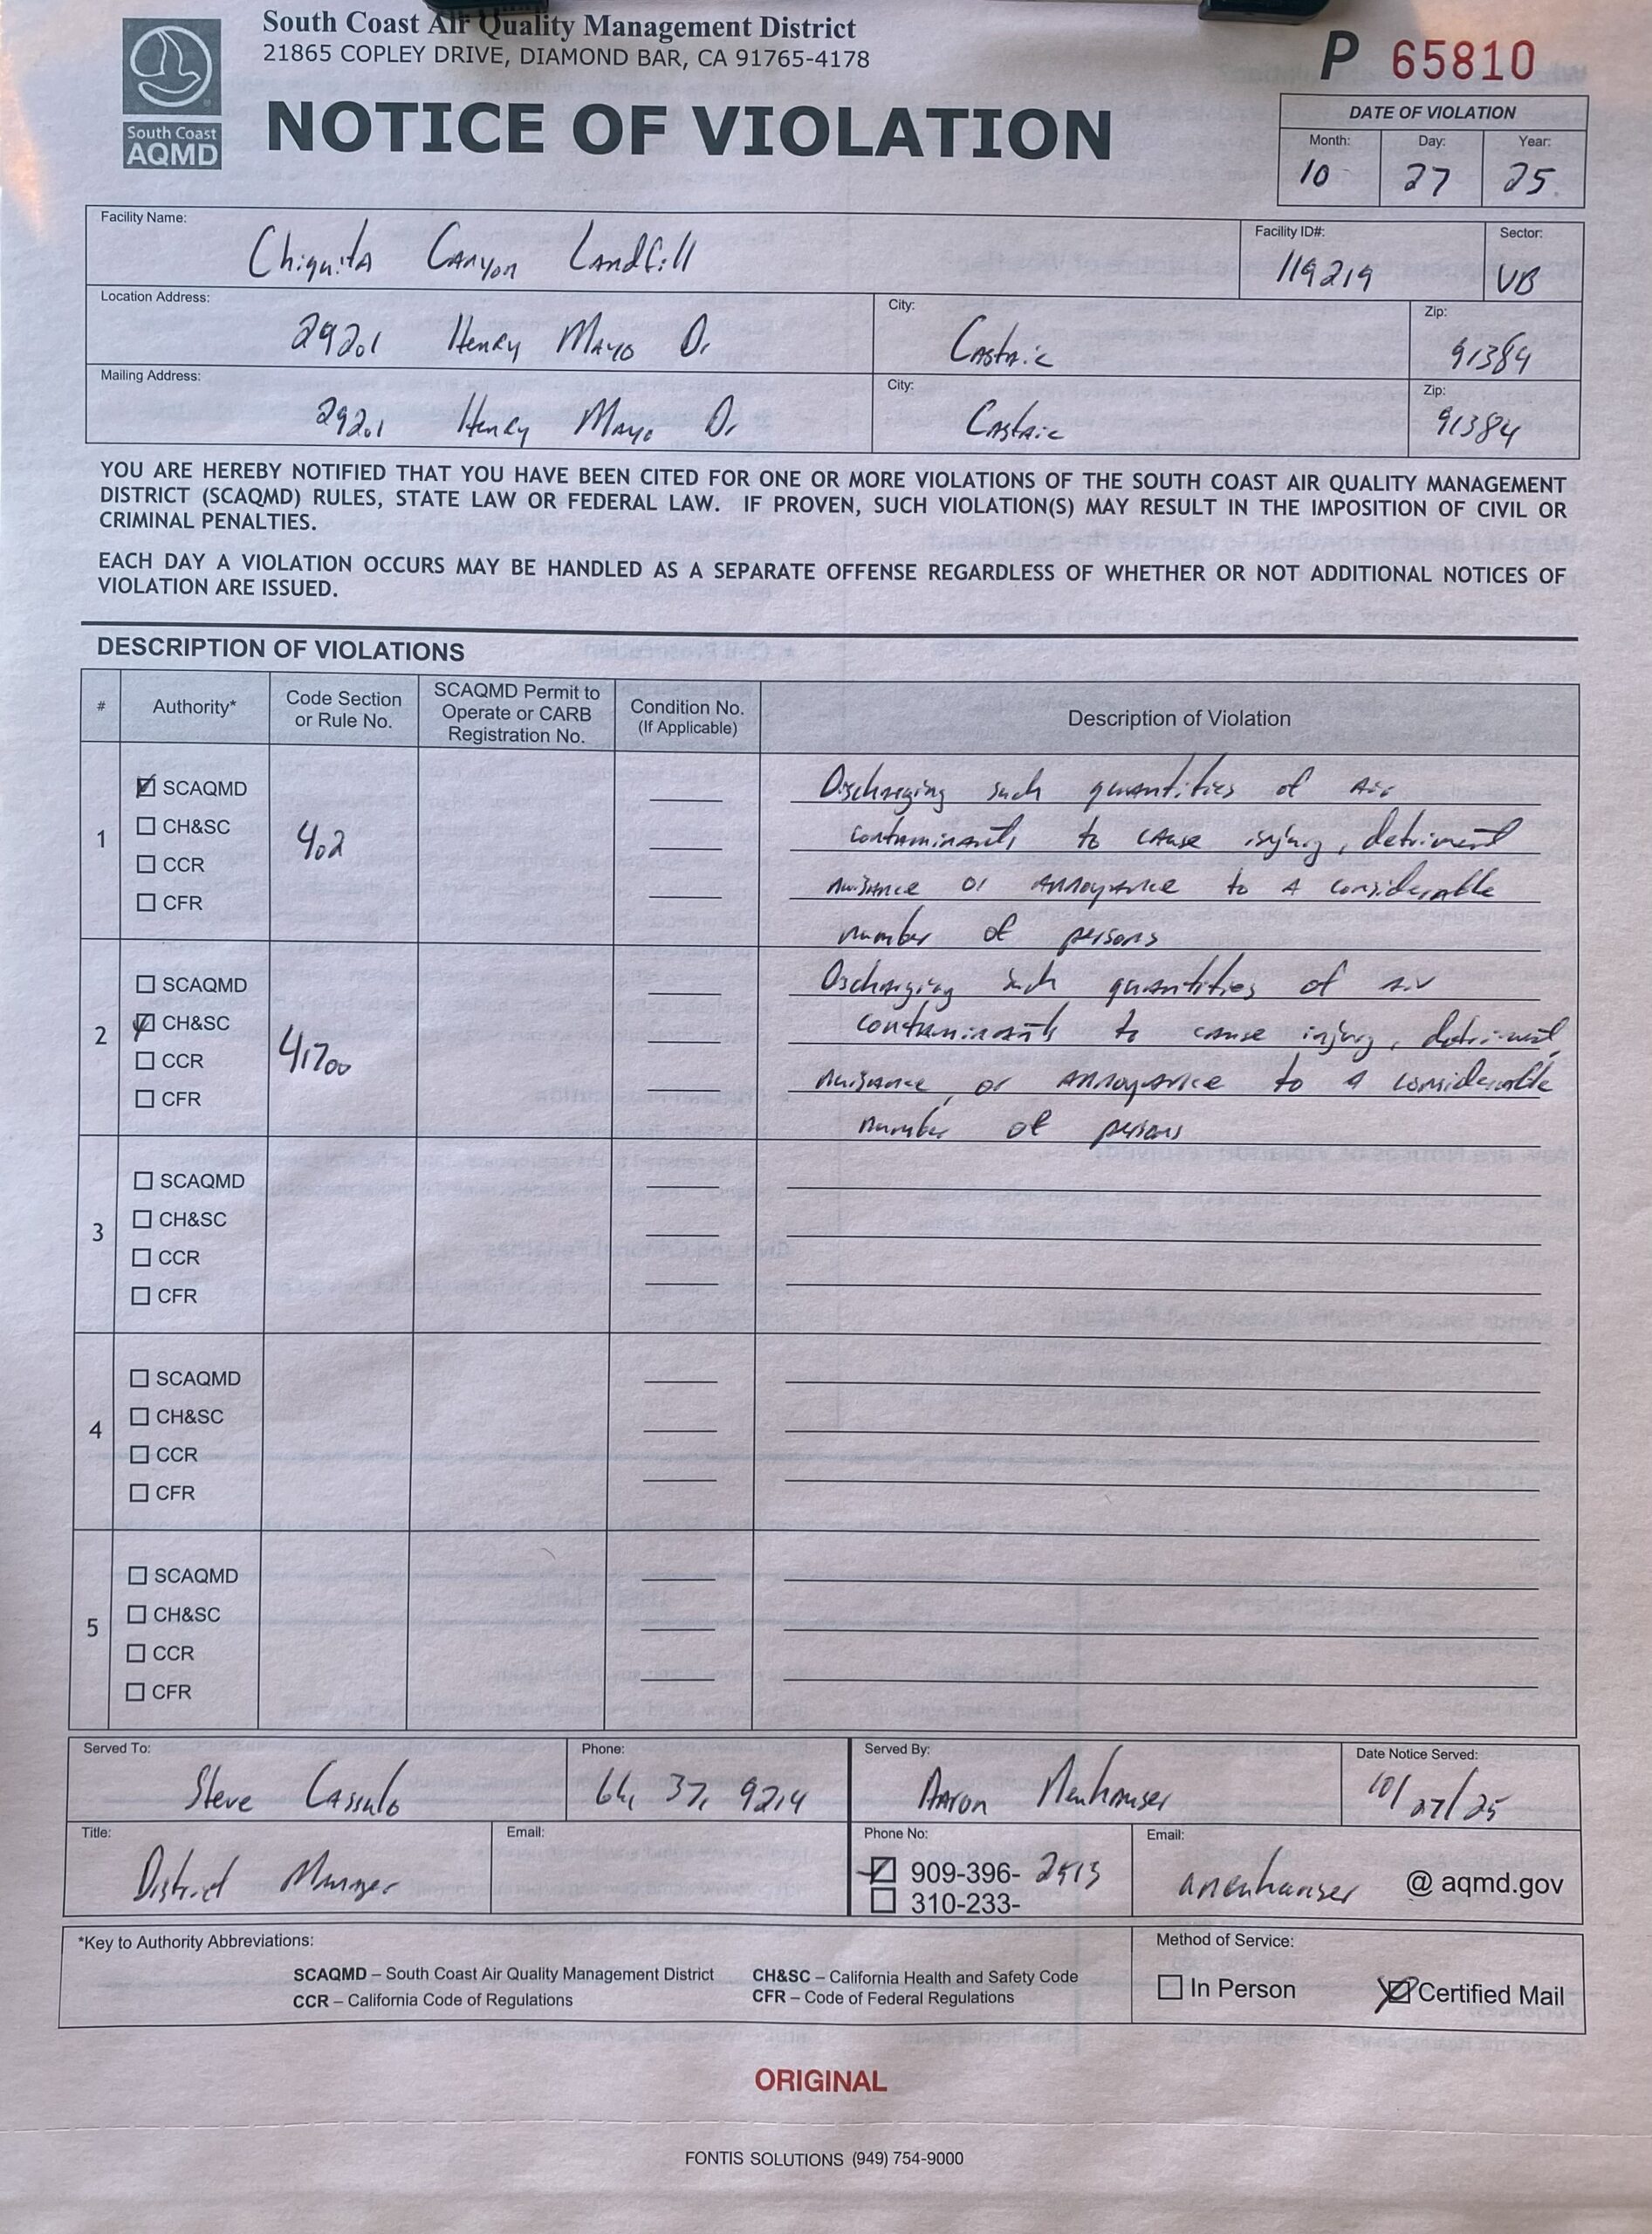 South Coast Air Quality Management District
21865 COPLEY DRIVE, DIAMOND BAR, CA 91765-4178
P 65810
NOTICE OF VIOLATION
South Coast
AQMD
DATE OF VIOLATION
Month: Day: Year:
10 27 25
Facility Name: Facility ID#: Sector:
Chiquita Canyon Landfill 119219 VB
Location Address: City: Zip:
29201 Henry Mayo Dr Castaic 91384
Mailing Address: City: Zip:
29201 Henry Mayo Dr Castaic 91384
YOU ARE HEREBY NOTIFIED THAT YOU HAVE BEEN CITED FOR ONE OR MORE VIOLATIONS OF THE SOUTH COAST AIR QUALITY MANAGEMENT
DISTRICT (SCAQMD) RULES, STATE LAW OR FEDERAL LAW. IF PROVEN, SUCH VIOLATION(S) MAY RESULT IN THE IMPOSITION OF CIVIL OR
CRIMINAL PENALTIES.
EACH DAY A VIOLATION OCCURS MAY BE HANDLED AS A SEPARATE OFFENSE REGARDLESS OF WHETHER OR NOT ADDITIONAL NOTICES OF
VIOLATION ARE ISSUED.
DESCRIPTION OF VIOLATIONS
# Authority* Code Section or Rule No. SCAQMD Permit to Operate or CARB Registration No. Condition No. (If Applicable) Description of Violation
1
SCAQMD
CH&SC
CCR
CFR
402
Discharging such quantities of air
contaminants to cause injury, detriment
nuisance or annoyance to a considerable
number of persons
2
SCAQMD
CH&SC
CCR
CFR
41700
Discharging such quantities of air
contaminants to cause injury, detriment,
nuisance, or annoyance to a considerable
number of persons
3
SCAQMD
CH&SC
CCR
CFR
4
SCAQMD
CH&SC
CCR
CFR
5
SCAQMD
CH&SC
CCR
CFR
Served To: Phone: Served By: Date Notice Served:
Steve Cassulo 661 371 9214 Aaron 10/27/25
Title: Email: Phone No: Email:
District Manager
909-396- 2513
310-233-
@ aqmd.gov
*Key to Authority Abbreviations: Method of Service:
SCAQMD – South Coast Air Quality Management District CH&SC – California Health and Safety Code
CCR – California Code of Regulations CFR – Code of Federal Regulations
In Person Certified Mail
ORIGINAL
FONTIS SOLUTIONS (949) 754-9000